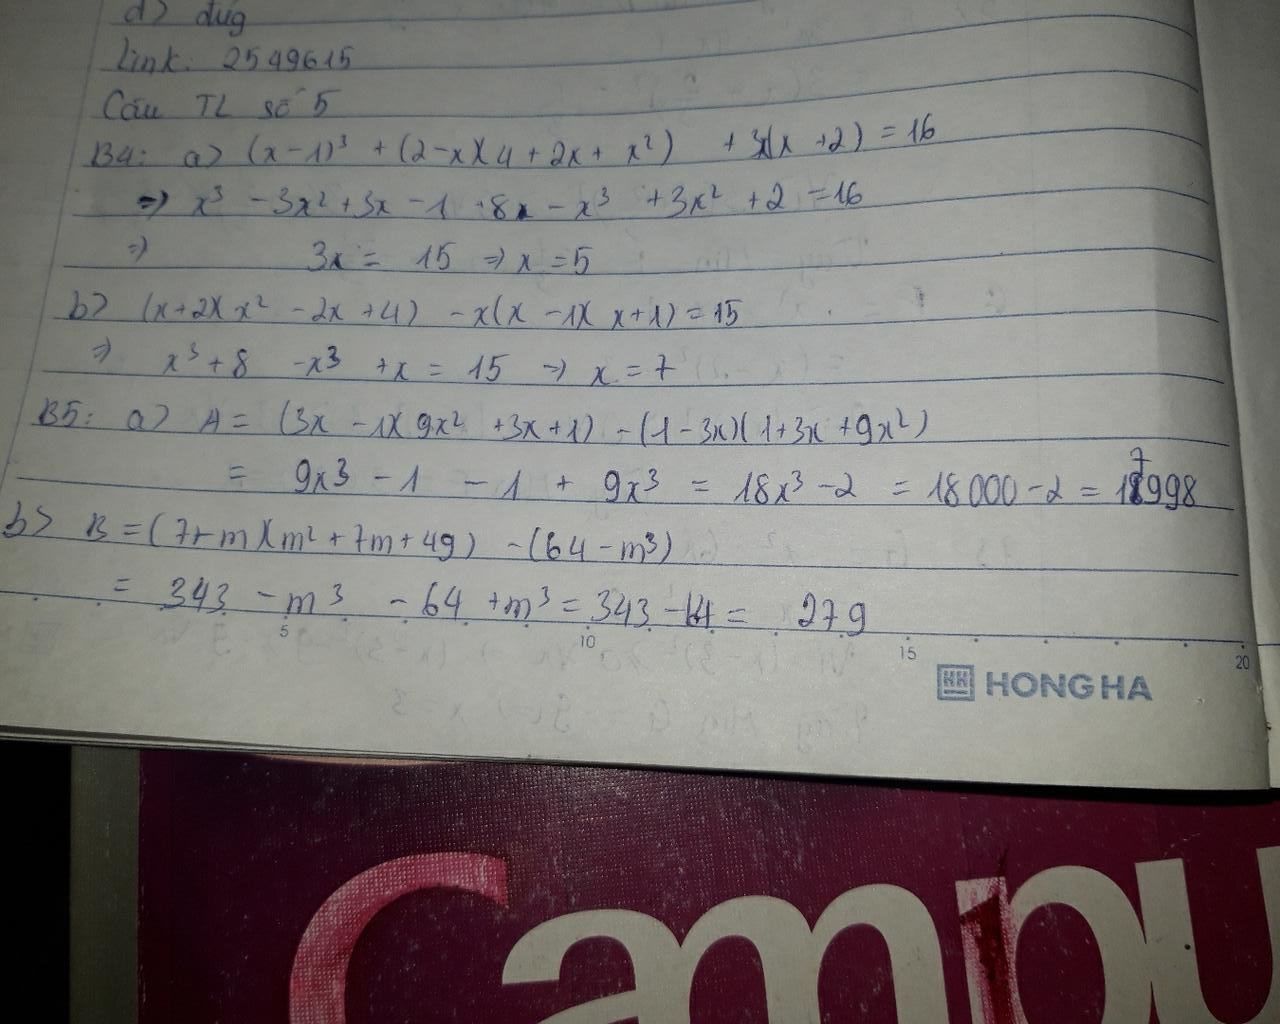 d) đúg
Link: 2549615
Câu TL số 5
B4: a) (x-1)³ + (2-x)(4 + 2x + x²) + 3x(x +2) = 16
=> x³ - 3x² + 3x - 1 + 8 - x³ + 3x² + 2 = 16
=> 3x = 15 => x = 5
b) (x+2)(x² - 2x + 4) - x(x - 1)(x+1) = 15
=> x³ + 8 - x³ + x = 15 => x = 7
B5: a) A = (3x - 1)(9x² + 3x + 1) - (1 - 3x)(1 + 3x + 9x²)
= 9x³ - 1 - 1 + 9x³ = 18x³ - 2 = 18000 - 2 = 17998
b) B = (7+m)(m² + 7m + 49) - (64 - m³)
= 343 - m³ - 64 + m³ = 343 - 64 = 279
5 10 15 20
HONG HA
Campu